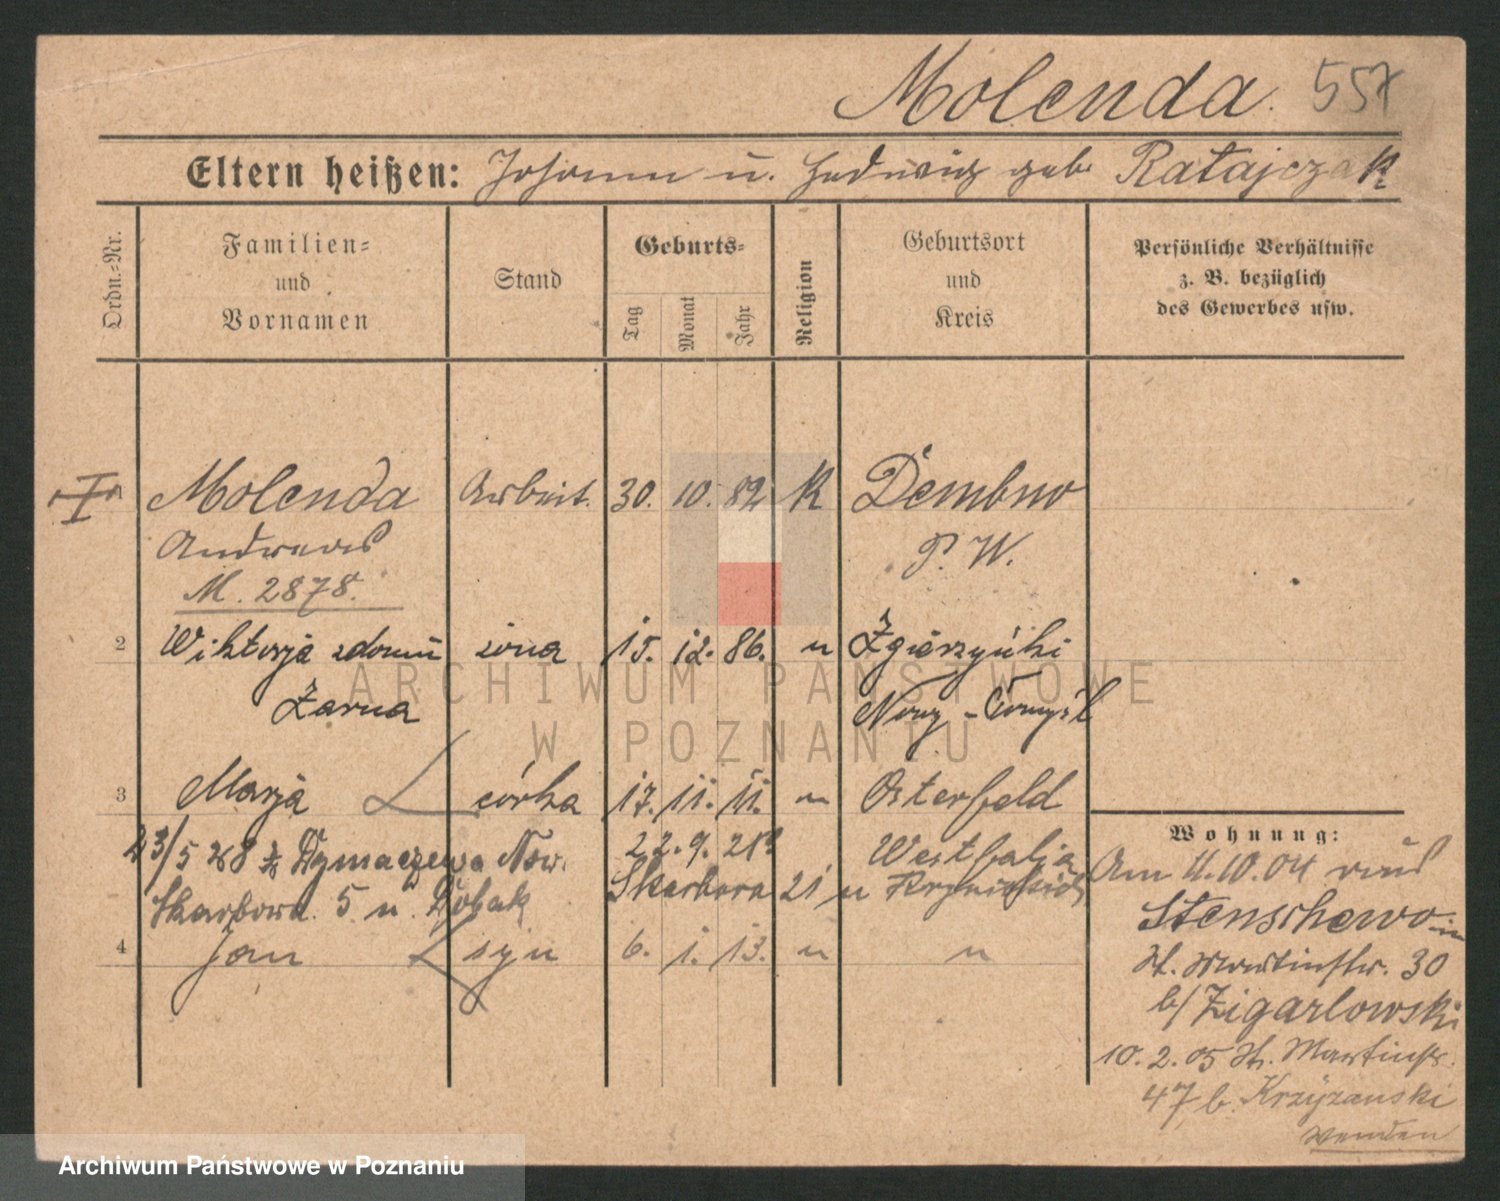 Molenda. 557
Eltern heißen: Johann u. Hedwig geb. Ratajczak
Ordn.-Nr.
Familien-
und
Vornamen
Stand
Geburts-
Tag
Monat
Jahr
Religion
Geburtsort
und
Kreis
Persönliche Verhältnisse
z. B. bezüglich
des Gewerbes usw.
Molenda Arbeit. 30. 10. 82 K Dembno
Andreas P. W.
M. 2878.
2 Wiktorja z domu żona 15. 12. 86. u
Żarna Nowy-Tomyśl
3 Marja córka 17. 11. 11. u Osterfeld
23/5 28 Dymaczewo Now. 22. 9. 21 Westfalja
Skarbowa 5 u. Skarbowa 21 u
4 Jan syn 6. 1. 13. u u
Wohnung:
Am 11.10.04 aus
Stenschewo in
St. Martinstr. 30
b/ Zigarlowski
10. 2. 05 St. Martinstr.
47 b. Krzyżanski
wenden
ARCHIWUM PAŃSTWOWE
W POZNANIU
Archiwum Państwowe w Poznaniu